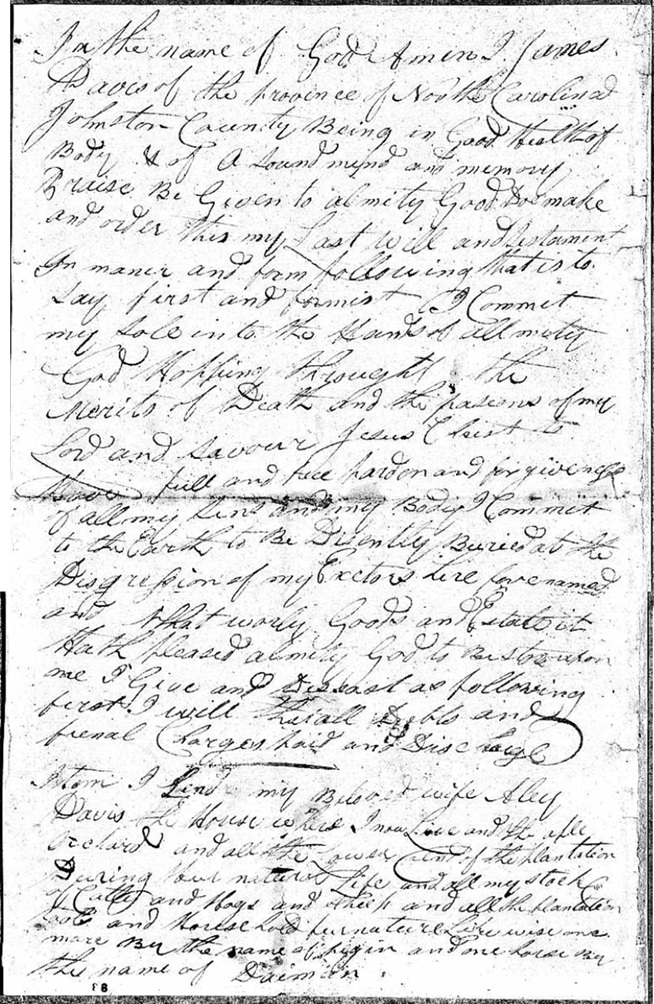 In the name of God Amen I James
Davis of the province of North Carolina
Johnston County Being in Good Health of
Body & of A Sound mynd and memory
Praise Be Given to almity Good Do make
and order this my Last will and testament
In maner and form following that is to
Say first and formist I Commit
my Sole into the Hands of all mity
God Hopping throught the
Merits of Death and the pasions of my
Lord and Savour Jesus Christ to
Have full and free pardon and forgiveness
of all my Sins and my Body I Commit
to the Earth to Be Disently Buried at the
Disgression of my Exctors here named
and What worly Goods and Estate it
Hath pleased almity God to Bestow upon
me I Give and as following
first I will that all Debts and
funeral Charges paid and Discharge
Itom I Lend my Beloved wife Aley
Davis the House where I now Live and the aple
orchard and all the Lower End of the plantation
During hour natural Life and all my stock
of Cattle and Hogs and sheep and all the plantation
tools and Household furnature Like wise one
mare By the name of and one horse By
the name of
88